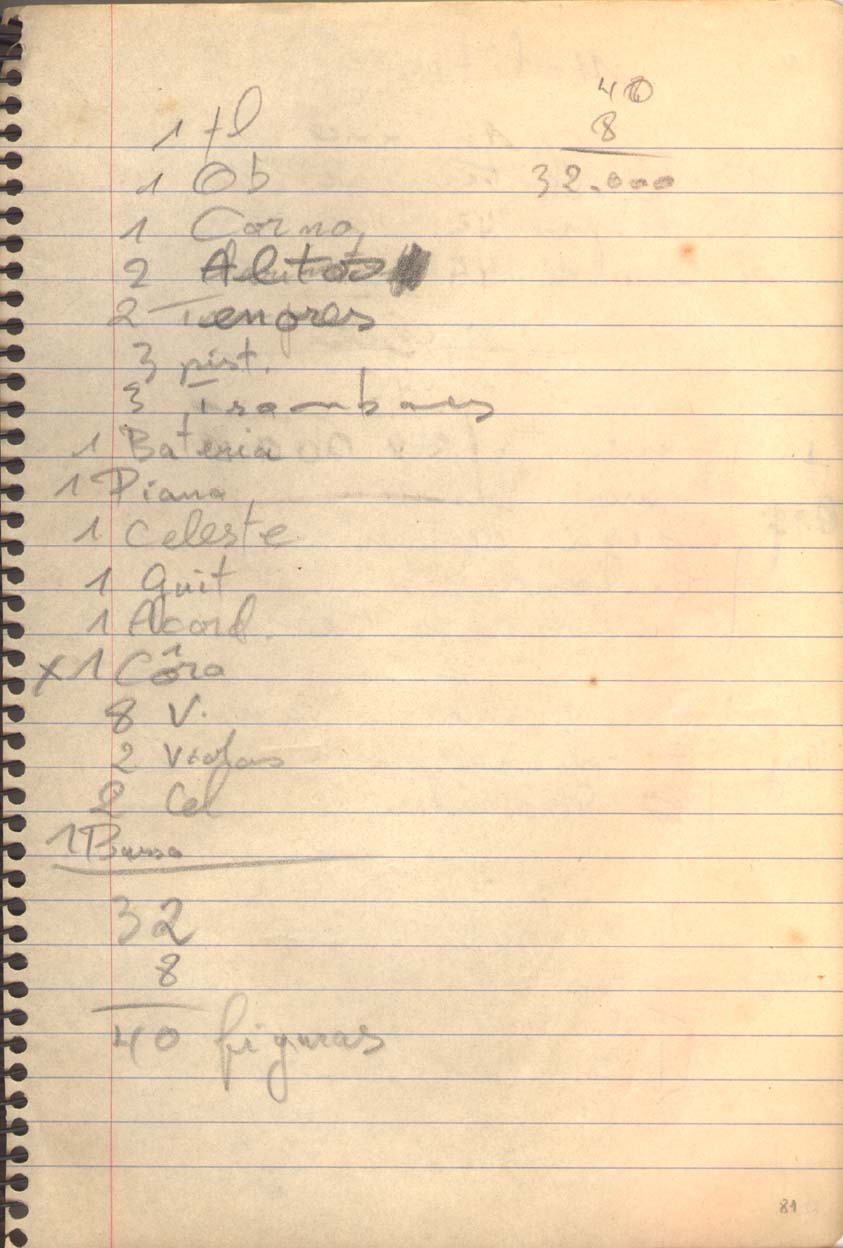 40
8
32.000
1 fl
1 Ob
1 Corno
2 Altos
2 Tenores
3 pist.
3 Trombones
1 Bateria
1 Piano
1 Celeste
1 Guit
1 Acord.
x 1 Côro
8 V.
2 Violas
2 Cel
1 Basso
32
8
40 figuras
81